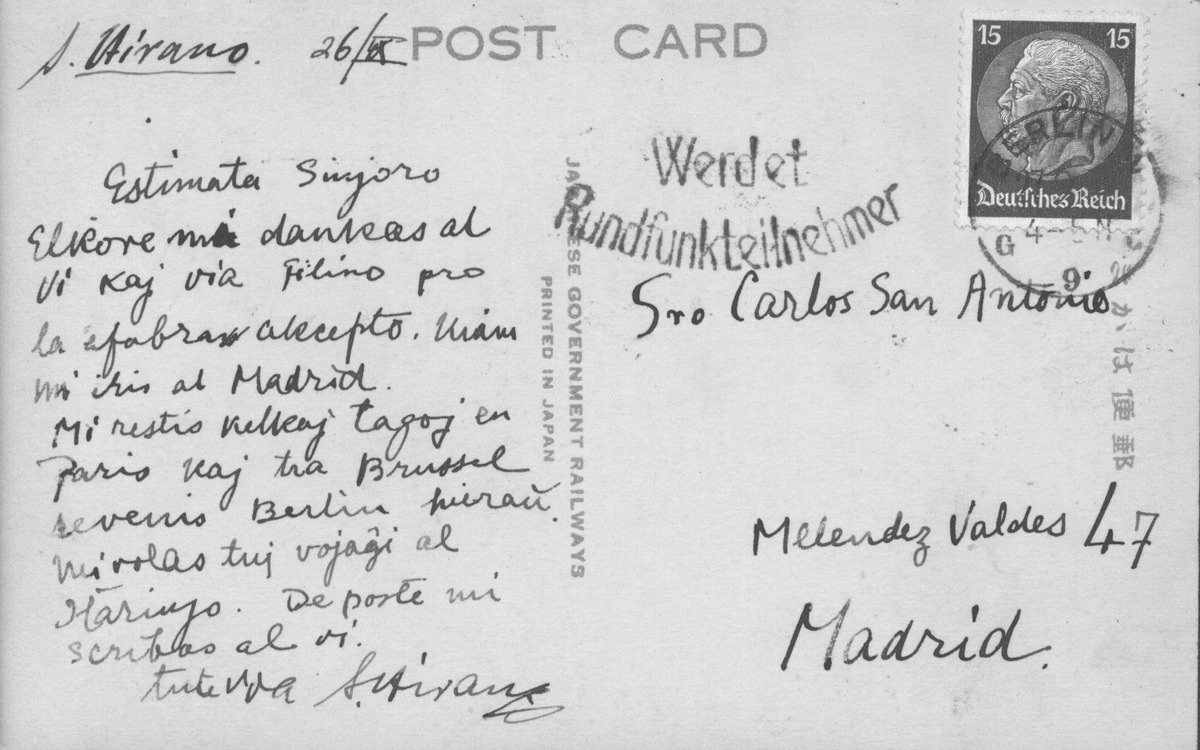 S. Hirano. 26/IX
POST CARD
15 15
Deutsches Reich
BERLIN
G
9
Werdet
Rundfunkteilnehmer
JAPANESE GOVERNMENT RAILWAYS
PRINTED IN JAPAN
かは便郵
Estimata Sinjoro
Elkore mi dankas al
vi kaj via filino pro
la afabra akcepto. Kiam
mi iris al Madrid.
Mi restis kelkaj tagoj en
Paris kaj tra Brussel
revenis Berlin hieraŭ.
Mi volas tuj vojaĝi al
De poste mi
scribos al vi.
tute via S. Hirano
Sro Carlos San Antonio
Melendez Valdes 47
Madrid.